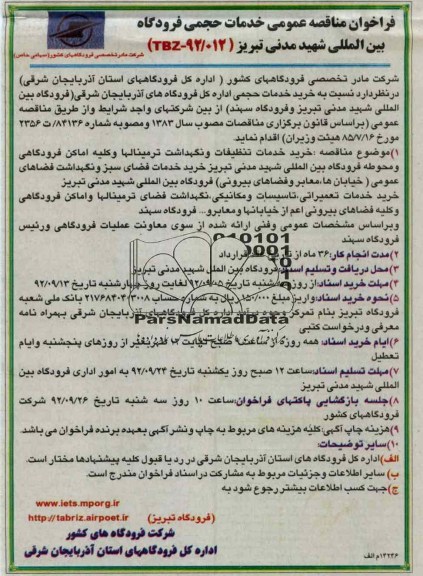 فراخوان مناقصه عمومی خدمات حجمی فرودگاه
بین المللی شهید مدنی تبریز (TBZ-92/012)
شرکت مادر تخصصی فرودگاههای کشور(سهامی خاص)
شرکت مادر تخصصی فرودگاههای کشور ( اداره کل فرودگاههای استان آذربایجان شرقی)
درنظردارد نسبت به خرید خدمات حجمی اداره کل فرودگاه های آذربایجان شرقی(فرودگاه بین
المللی شهید مدنی تبریز وفرودگاه سهند) از بین شرکتهای واجد شرایط واز طریق مناقصه
عمومی (براساس قانون برگزاری مناقصات مصوب سال 1383 ومصوبه شماره 84136/ت 2356
مورخ 85/7/16 هیئت وزیران) اقدام نماید.
1)موضوع مناقصه :خرید خدمات تنظیفات ونگهداشت ترمینالها وکلیه اماکن فرودگاهی
ومحوطه فرودگاه بین المللی شهید مدنی تبریز خرید خدمات فضای سبز ونگهداشت فضاهای
عمومی ( خیابان ها،معابر وفضاهای بیرونی) فرودگاه بین المللی شهید مدنی تبریز
خرید خدمات تعمیراتی،تاسیسات ومکانیکی،نگهداشت فضای ترمینالها واماکن فرودگاهی
وکلیه فضاهای بیرونی اعم از خیابانها ومعابرو... فرودگاه سهند
وبراساس مشخصات عمومی وفنی ارائه شده از سوی معاونت عملیات فرودگاهی ورئیس
فرودگاه سهند
2)مدت انجام کار:36 ماه از قرارداد
3)محل دریافت وتسلیم اسناد:فرودگاه بین الملل شهید مدنی تبریز
4)مهلت خرید اسناد:از روز شنبه تاریخ 92/09/05 لغایت روز چهارشنبه تاریخ 92/09/13
5)نحوه خرید اسناد:واریز مبلغ 150/000 ریال به شماره حساب 2176840403008 بانک ملی شعبه
فرودگاه تبریز بنام تمرکز وجوه اداره کل فرودگاههای آذربایجان شرقی بهمراه نامه
معرفی ودرخواست کتبی
6)ایام خرید اسناد: همه روزه از ساعت صبح لغایت 12 ظهر بغیر از روزهای پنجشنبه وایام
تعطیل
7)مهلت تسلیم اسناد:ساعت 12 صبح روز یکشنبه تاریخ 92/09/24 به امور اداری فرودگاه بین
المللی شهید مدنی تبریز
8)جلسه بازگشایی پاکتهای فراخوان:ساعت 10 روز سه شنبه تاریخ 92/09/26 شرکت
فرودگاههای کشور
9)هزینه چاپ آگهی:کلیه هزینه های مربوط به چاپ ونشر آگهی بعهده برنده فراخوان می باشد.
10)سایر توضیحات:
الف)اداره کل فرودگاه های استان آذربایجان شرقی در رد یا قبول کلیه پیشنهادها مختار است.
ب) سایر اطلاعات وجزئیات مربوط به مشارکت دراسناد فراخوان مندرج است.
ج)جهت کسب اطلاعات بیشتر رجوع شود به
www.iets.mporg.ir
http://tabriz.airport.ir (فرودگاه تبریز)
شرکت فرودگاه های کشور
اداره کل فرودگاههای استان آذربایجان شرقی
13236م الف
ParsNamadData